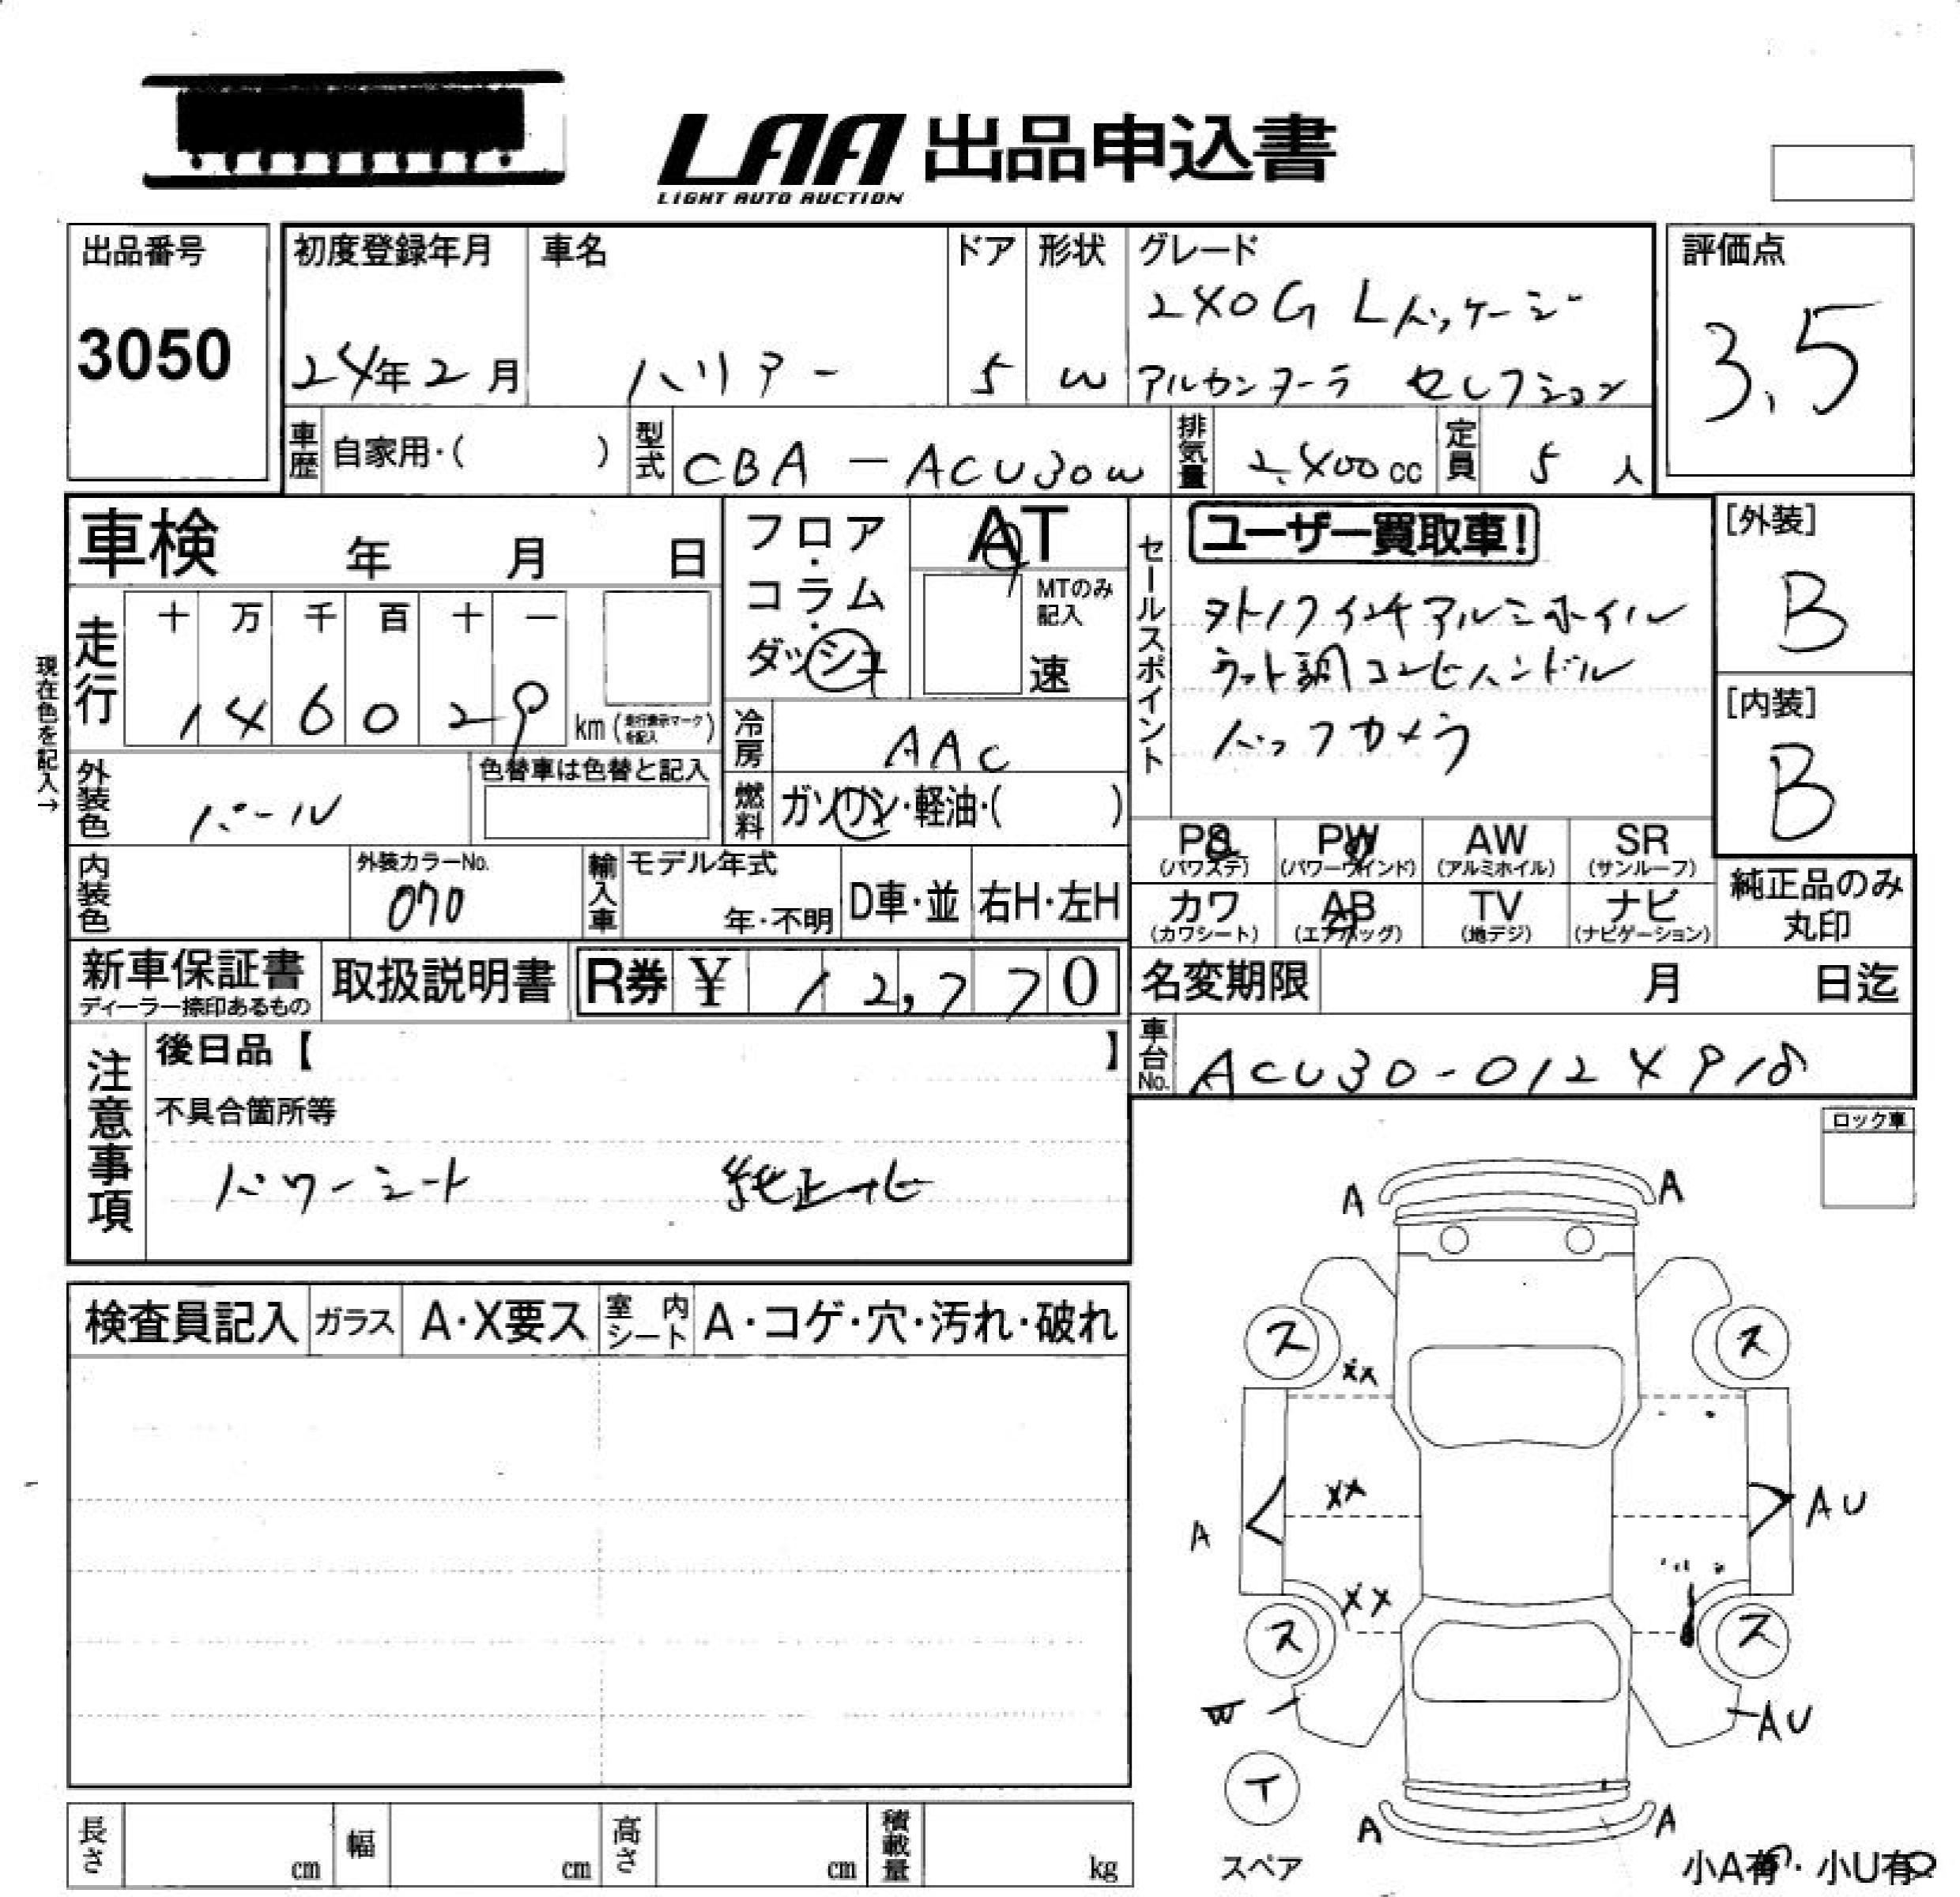 LAA 出品申込書
LIGHT AUTO AUCTION
出品番号
3050
初度登録年月
24年2月
車名
ハリアー
ドア
5
形状
W
グレード
240G Lパッケージ
アルカンターラ セレクション
評価点
3.5
車歴
自家用・( )
型式
CBA-ACU30W
排気量
2,400cc
定員
5人
車検 年 月 日
フロア・コラム・ダッシュ
AT
MTのみ記入
速
セールスポイント
ユーザー買取車!
外17インチアルミホイル
ウット調コンビハンドル
バックカメラ
[外装]
B
[内装]
B
現在色を記入→
走行
十 万 千 百 十 一
1 4 6 0 2 9
km(走行表示マークを記入)
冷房
AAC
外装色
パール
色替車は色替と記入
燃料
ガソリン・軽油・( )
PS
(パワステ)
PW
(パワーウインド)
AW
(アルミホイル)
SR
(サンルーフ)
カワ
(カワシート)
AB
(エアバッグ)
TV
(地デジ)
ナビ
(ナビゲーション)
純正品のみ
丸印
内装色
外装カラーNo.
070
輸入車
モデル年式
年・不明
D車・並
右H・左H
新車保証書
ディーラー捺印あるもの
取扱説明書
R券 ¥ 12,770
名変期限 月 日迄
車台No.
ACU30-0124918
注意事項
後日品【 】
不具合箇所等
パワーシート 純正ナビ
ロック車
検査員記入
ガラス
A・X要ス
室内シート
A・コゲ・穴・汚れ・破れ
A A
ス ス
XX
XX
A AU
XX
ス ス
W AU
T
スペア
A A
小A有・小U有
長さ cm
幅 cm
高さ cm
積載量 kg